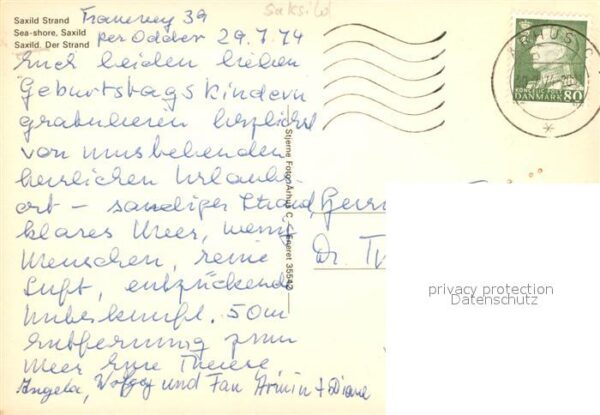 Saxild Strand
Sea-shore, Saxild
Saxild. Der Strand
39
per Odder 29.7.74
Saksild
Euch beiden lieben
Geburtstagskindern
gratulieren herzlichst
von uns
herrlichen Urlaubs-
ort – sandiger Strand,
klares Meer, wenig
Menschen, reine
Luft, entzückende
Unterkunft. 50m
Entfernung zum
Meer Eure Therese
Angela, und Fam Armin + Diane
Stjerne Foto Århus C. - Eneret
Herrn
Dr.
ÅRHUS C
DANMARK 80
privacy protection
Datenschutz